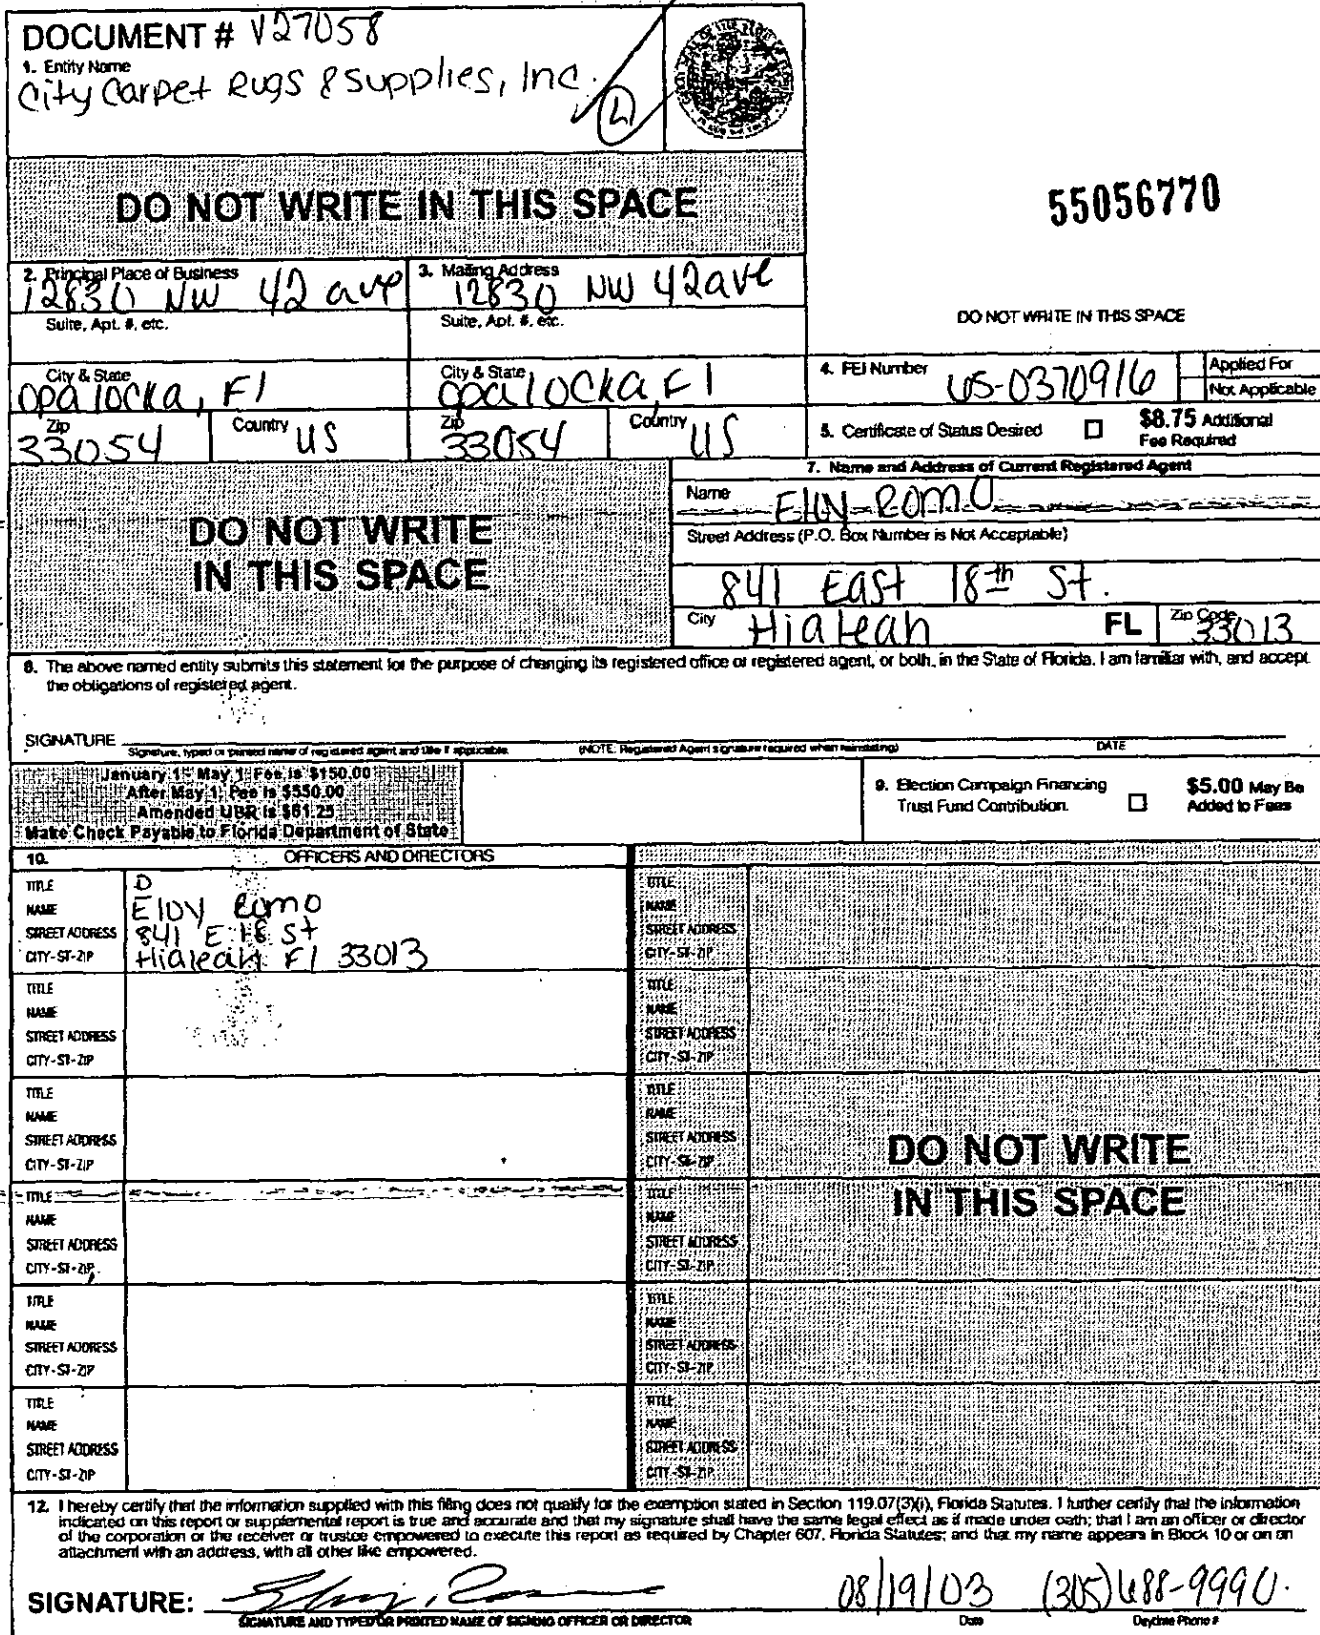 DOCUMENT # V27058
1. Entity Name
City Carpet Rugs & Supplies, Inc.
DO NOT WRITE IN THIS SPACE
55056770
2. Principal Place of Business
12830 NW 42 ave
3. Mailing Address
12830 NW 42 ave
Suite, Apt. #, etc.
Suite, Apt. #, etc.
DO NOT WRITE IN THIS SPACE
City & State
Opa locka, Fl
City & State
Opa locka, Fl
4. FEI Number
65-0370916
Applied For
Not Applicable
Zip
33054
Country
US
Zip
33054
Country
US
5. Certificate of Status Desired
$8.75 Additional
Fee Required
DO NOT WRITE
IN THIS SPACE
7. Name and Address of Current Registered Agent
Name
Eloy Romo
Street Address (P.O. Box Number is Not Acceptable)
841 East 18th St.
City
Hialeah
FL
Zip Code
33013
8. The above named entity submits this statement for the purpose of changing its registered office or registered agent, or both, in the State of Florida. I am familiar with, and accept
the obligations of registered agent.
SIGNATURE
Signature, typed or printed name of registered agent and title if applicable.
(NOTE: Registered Agent signature required when reinstating)
DATE
January 1 - May 1 Fee is $150.00
After May 1, Fee is $550.00
Amended UBR is $61.25
Make Check Payable to Florida Department of State
9. Election Campaign Financing
Trust Fund Contribution.
$5.00 May Be
Added to Fees
10. OFFICERS AND DIRECTORS
TITLE D
NAME Eloy Romo
STREET ADDRESS 841 E 18 St
CITY-ST-ZIP Hialeah Fl 33013
TITLE
NAME
STREET ADDRESS
CITY-ST-ZIP
TITLE
NAME
STREET ADDRESS
CITY-ST-ZIP
TITLE
NAME
STREET ADDRESS
CITY-ST-ZIP
TITLE
NAME
STREET ADDRESS
CITY-ST-ZIP
TITLE
NAME
STREET ADDRESS
CITY-ST-ZIP
TITLE
NAME
STREET ADDRESS
CITY-ST-ZIP
TITLE
NAME
STREET ADDRESS
CITY-ST-ZIP
TITLE
NAME
STREET ADDRESS
CITY-ST-ZIP
TITLE
NAME
STREET ADDRESS
CITY-ST-ZIP
TITLE
NAME
STREET ADDRESS
CITY-ST-ZIP
TITLE
NAME
STREET ADDRESS
CITY-ST-ZIP
DO NOT WRITE
IN THIS SPACE
12. I hereby certify that the information supplied with this filing does not qualify for the exemption stated in Section 119.07(3)(i), Florida Statutes. I further certify that the information
indicated on this report or supplemental report is true and accurate and that my signature shall have the same legal effect as if made under oath; that I am an officer or director
of the corporation or the receiver or trustee empowered to execute this report as required by Chapter 607, Florida Statutes; and that my name appears in Block 10 or on an
attachment with an address, with all other like empowered.
SIGNATURE:
08/19/03 (305)688-9990.
SIGNATURE AND TYPED OR PRINTED NAME OF SIGNING OFFICER OR DIRECTOR
Date
Daytime Phone #